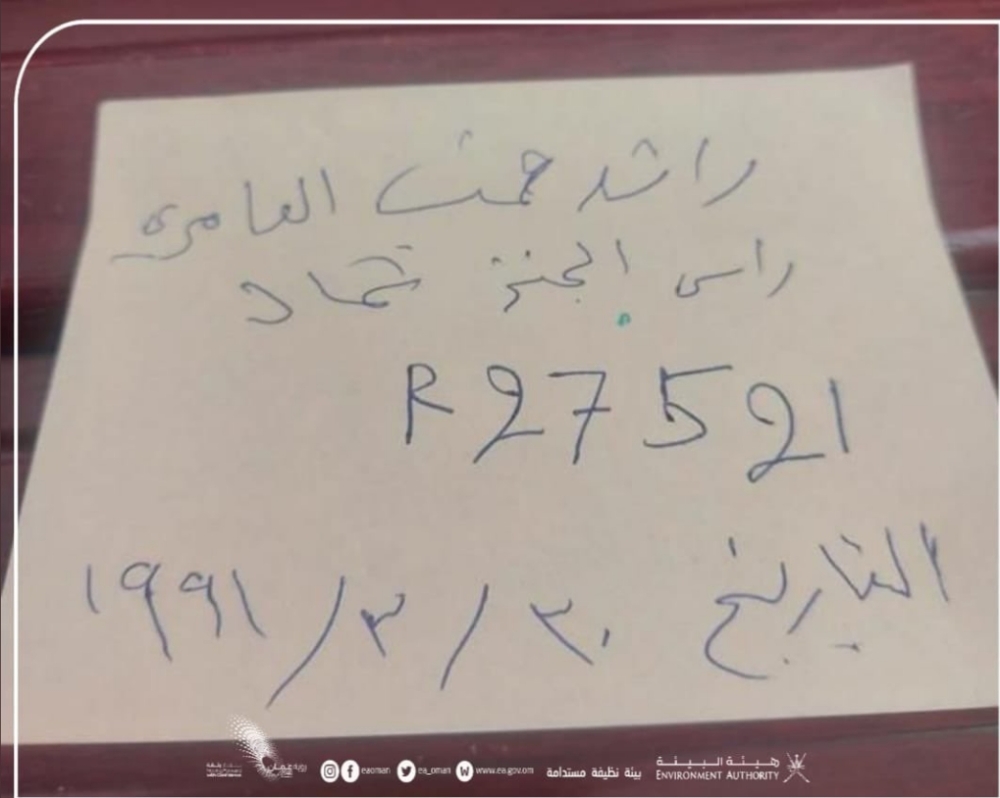 راشد حمد العامري
راس الجنز حماد
R 27521
التاريخ ٣٠ / ٣ / ١٩٩١
eaoman ea_oman www.ea.gov.om بيئة نظيفة مستدامة
هيئة البيئة
ENVIRONMENT AUTHORITY